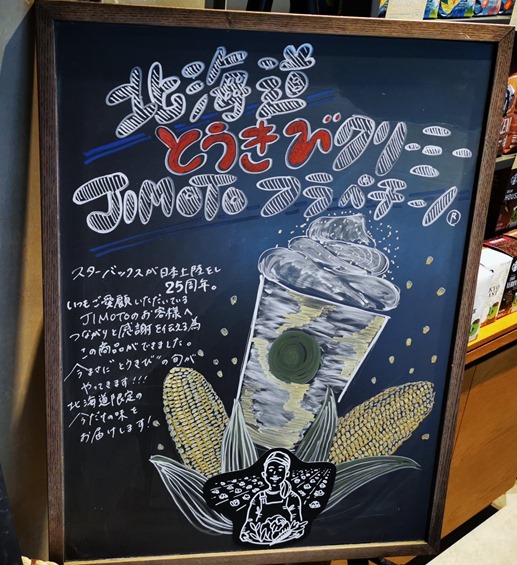 北海道
とうきびクリーミー
JIMOTO フラペチーノ®
スターバックスが日本上陸をし
25周年。
いつもご愛顧いただいている
JIMOTOのお客様へ
つながりと感謝を伝える為
この商品ができました。
今まさに"とうきび"の旬が
やってきます!!!
北海道限定の
今だけの味を
お届けします!